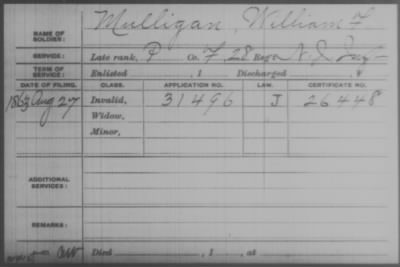 NAME OF SOLDIER: Mulligan, William F
SERVICE: Late rank, P Co. F, 28 Reg't N.J. Inf
TERM OF SERVICE: Enlisted , 1 Discharged , 1
DATE OF FILING. CLASS. APPLICATION NO. LAW. CERTIFICATE NO.
1863 Aug 27 Invalid, 31496 J 26448
Widow,
Minor,
ADDITIONAL SERVICES:
REMARKS:
Died , 1 , at